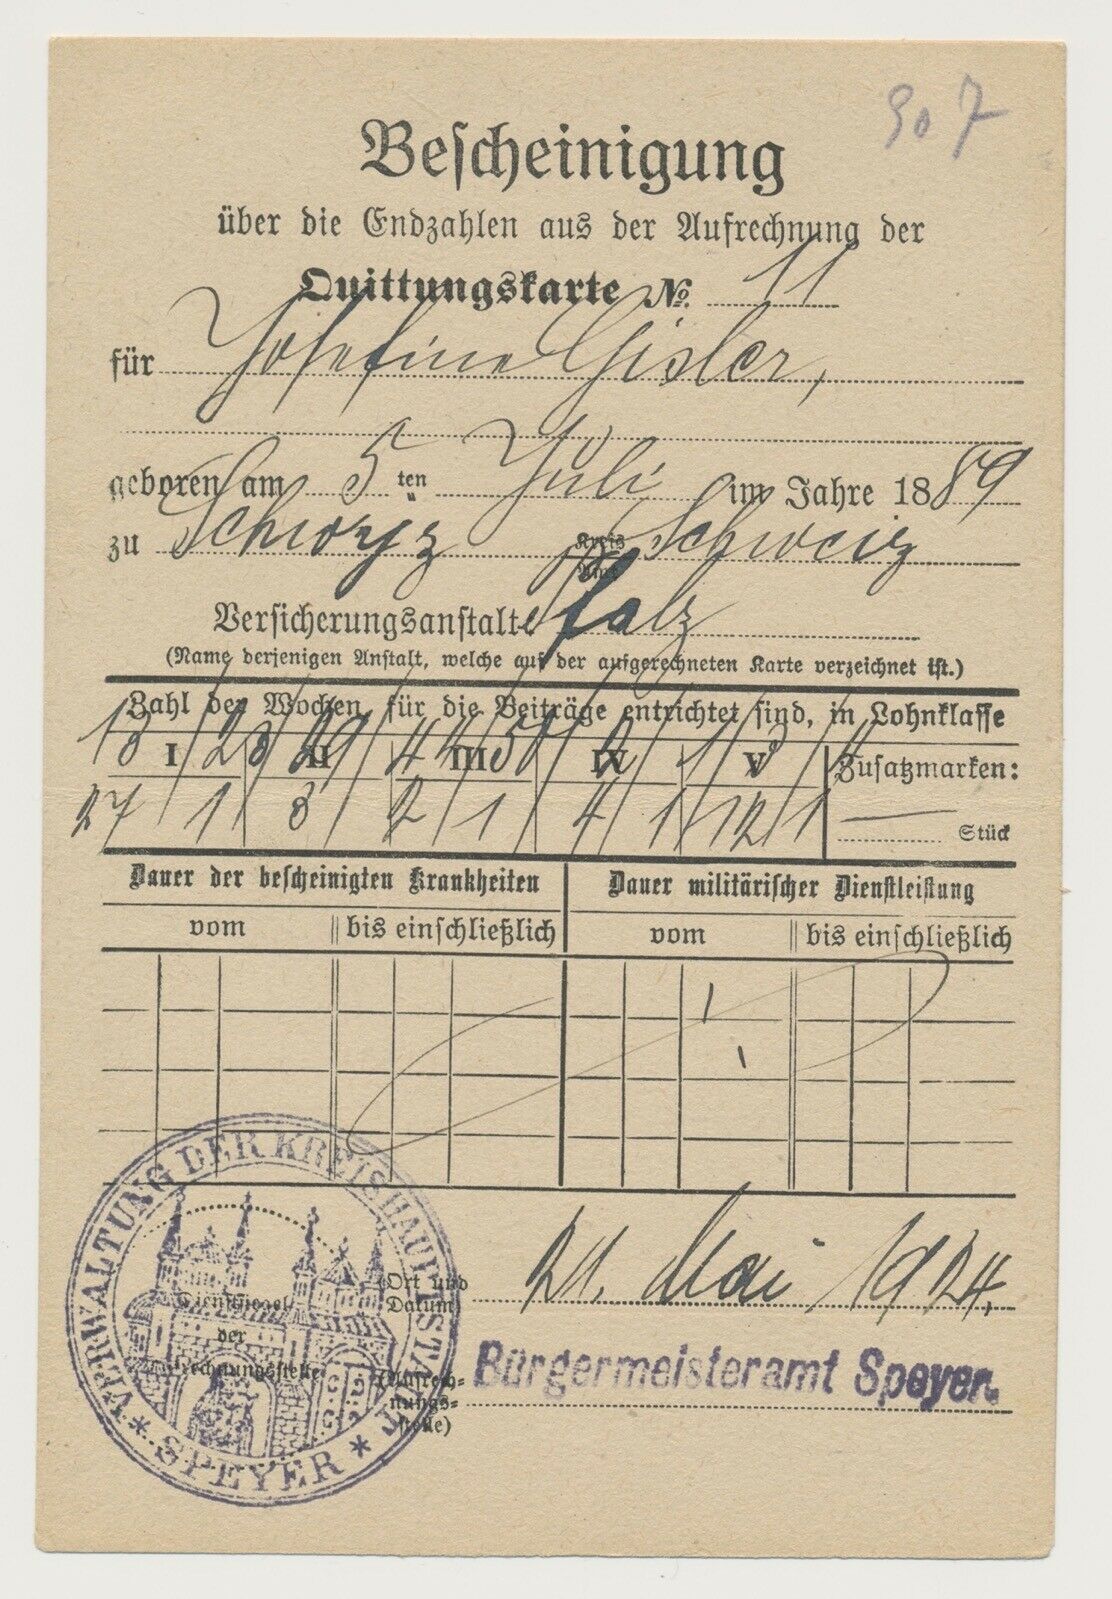 907
Bescheinigung
über die Endzahlen aus der Aufrechnung der
Quittungskarte No. 11
für Josefine Gisler,
geboren am 5 ten Juli im Jahre 1889
zu Schwyz Kreis Amt Schweiz
Versicherungsanstalt: Pfalz
(Name derjenigen Anstalt, welche auf der aufgerechneten Karte verzeichnet ist.)
Zahl der Wochen, für die Beiträge entrichtet sind, in Lohnklasse
I II III IV V Zusatzmarken:
27 1 3 2 1 4 1 12 1 — Stück
Dauer der bescheinigten Krankheiten Dauer militärischer Dienstleistung
vom bis einschließlich vom bis einschließlich
VERWALTUNG DER KREISHAUPTSTADT
* SPEYER *
Dienstsiegel
der
Aufrechnungsstelle
(Ort und
Datum) 21. Mai 1924.
(Aufrech-
nungs-
stelle) Bürgermeisteramt Speyer.